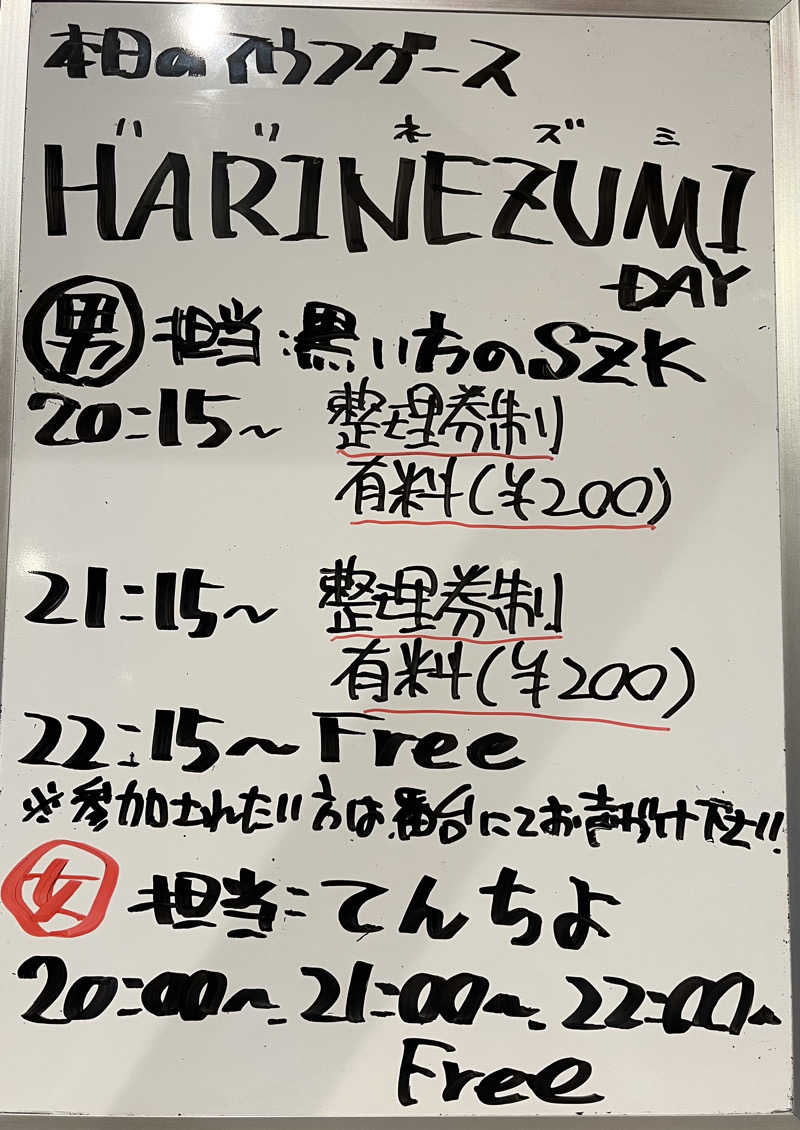 本日のアウフグース
ハリネズミ
HARINEZUMI
DAY
男 担当:黒い方のSZK
20:15〜 整理券制
有料(¥200)
21:15〜 整理券制
有料(¥200)
22:15〜 Free
※参加されたい方は番台にてお声がけ下さい!!
女 担当:てんちよ
20:00〜、21:00〜、22:00〜
Free